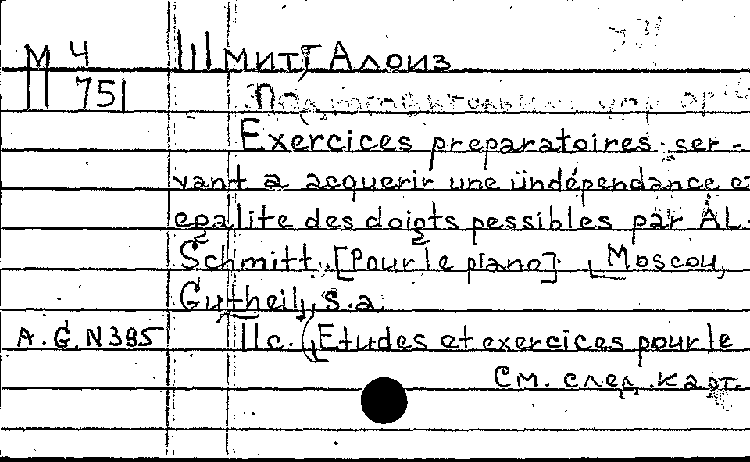 М 4 Шмитт Алоиз
П 751
Exercices preparatoires ser-
vant a acquerir une indépendance et
egalite des doigts pessibles par AL.
Schmitt. [Pour le piano]. Moscou,
Gutheil, s.a.
A.G.N385 11c. (Etudes et exercices pour le
См. след. карт.